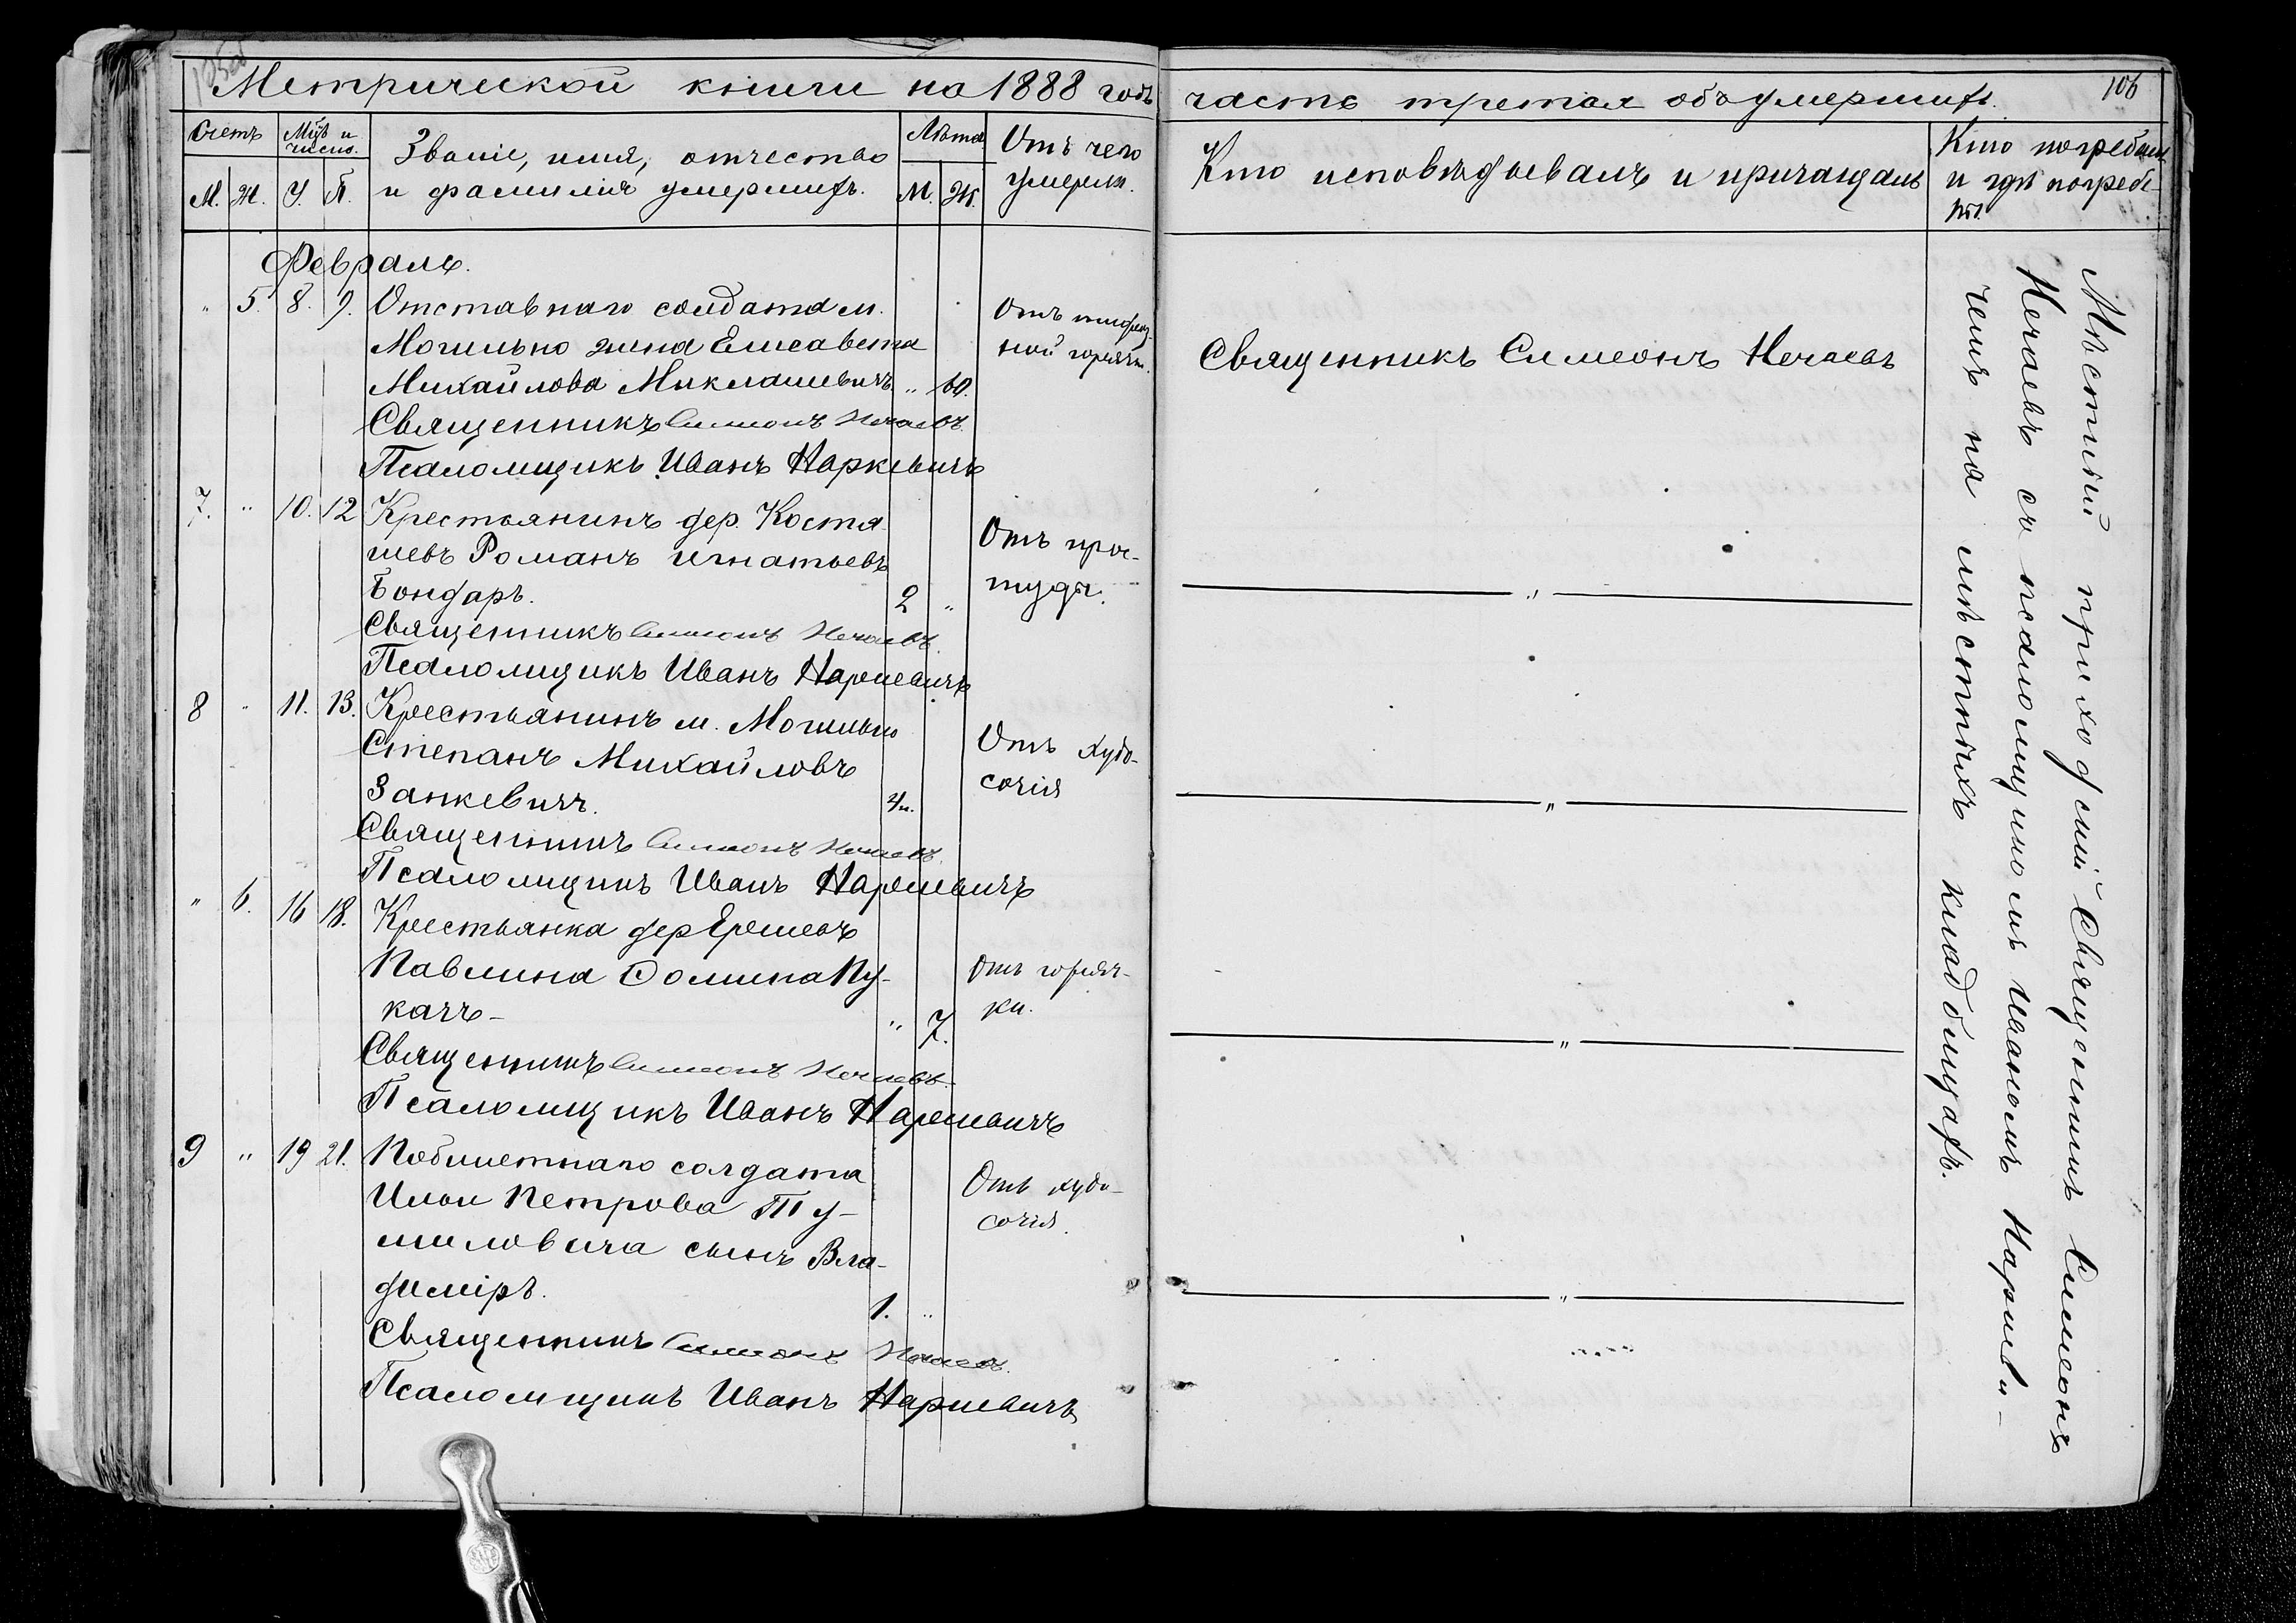 Метрической книги на 1888 годъ
часть третая объ умершихъ.
106
Счетъ
М.
Ж.
Мцъ и
число.
У.
П.
Званіе, имя, отчество
и фамилія умершихъ.
Лѣта
М.
Ж.
Отъ чего
умерли.
Кто исповѣдывалъ и причащалъ
Кто погребалъ
и гдѣ погребе-
ны.
Февраль.
" 5. 8. 9. Отставнаго солдата м.
Могильно жена Елисавета
Михайлова Миклашевичъ. " 60.
Отъ тифоз-
ной горячк.
Священникъ Симеонъ Нечаевъ
Священникъ Симеонъ Нечаевъ.
Псаломщикъ Иванъ Наркевичъ
7. " 10. 12 Крестьянинъ дер. Костя-
шевъ Романъ Игнатьевъ
Бондарь. 2 "
Отъ прос-
туды.
"
Священникъ Симеонъ Нечаевъ.
Псаломщикъ Иванъ Наркевичъ
8 " 11. 13. Крестьянинъ м. Могильно
Степанъ Михайловъ
Занкевичъ.
Отъ худо-
сочія
"
Священникъ Симеонъ Нечаевъ.
Псаломщикъ Иванъ Наркевичъ
" 6. 16 18. Крестьянка дер Ерешевъ
Павлина Фомина Лу-
качъ- " 7.
Отъ горяч-
ки.
"
Священникъ Симеонъ Нечаевъ.
Псаломщикъ Иванъ Наркевичъ
9 " 19 21. Побилетнаго солдата
Ильи Петрова Ту-
миловича сынъ Вла-
диміръ. 1. "
Отъ худо-
сочія.
"
Священникъ Симеонъ Нечаевъ.
Псаломщикъ Иванъ Наркевичъ
Мѣстный приходскій Священникъ Симеонъ
Нечаевъ съ псаломщикомъ Иваномъ Наркеви-
чемъ на мѣстныхъ кладбищахъ.